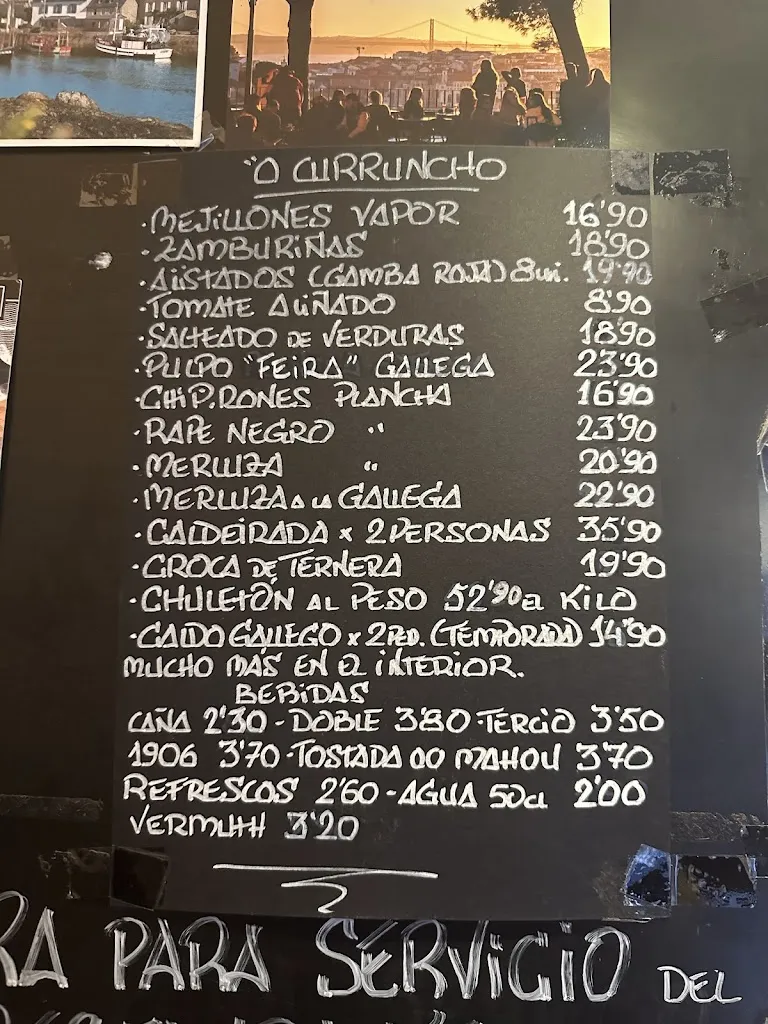 "O CURRUNCHO
·MEJILLONES VAPOR 16'90
·ZAMBURIÑAS 18'90
·ALISTADOS (GAMBA ROJA) 8un. 19'90
·TOMATE ALIÑADO 8'90
·SALTEADO DE VERDURAS 18'90
·PULPO "FEIRA" GALLEGA 23'90
·CHIPIRONES PLANCHA 16'90
·RAPE NEGRO " 23'90
·MERLUZA " 20'90
·MERLUZA A LA GALLEGA 22'90
·CALDEIRADA x 2 PERSONAS 35'90
·CROCA DE TERNERA 19'90
·CHULETÓN AL PESO 52'90 EL KILO
·CALDO GALLEGO x 2 PED. (TEMPORADA) 14'90
MUCHO MÁS EN EL INTERIOR.
BEBIDAS
CAÑA 2'30 - DOBLE 3'80 - TERCIO 3'50
1906 3'70 - TOSTADA 00 MAHOU 3'70
REFRESCOS 2'60 - AGUA 50cl 2'00
VERMUTH 3'20
RA PARA SERVICIO DEL